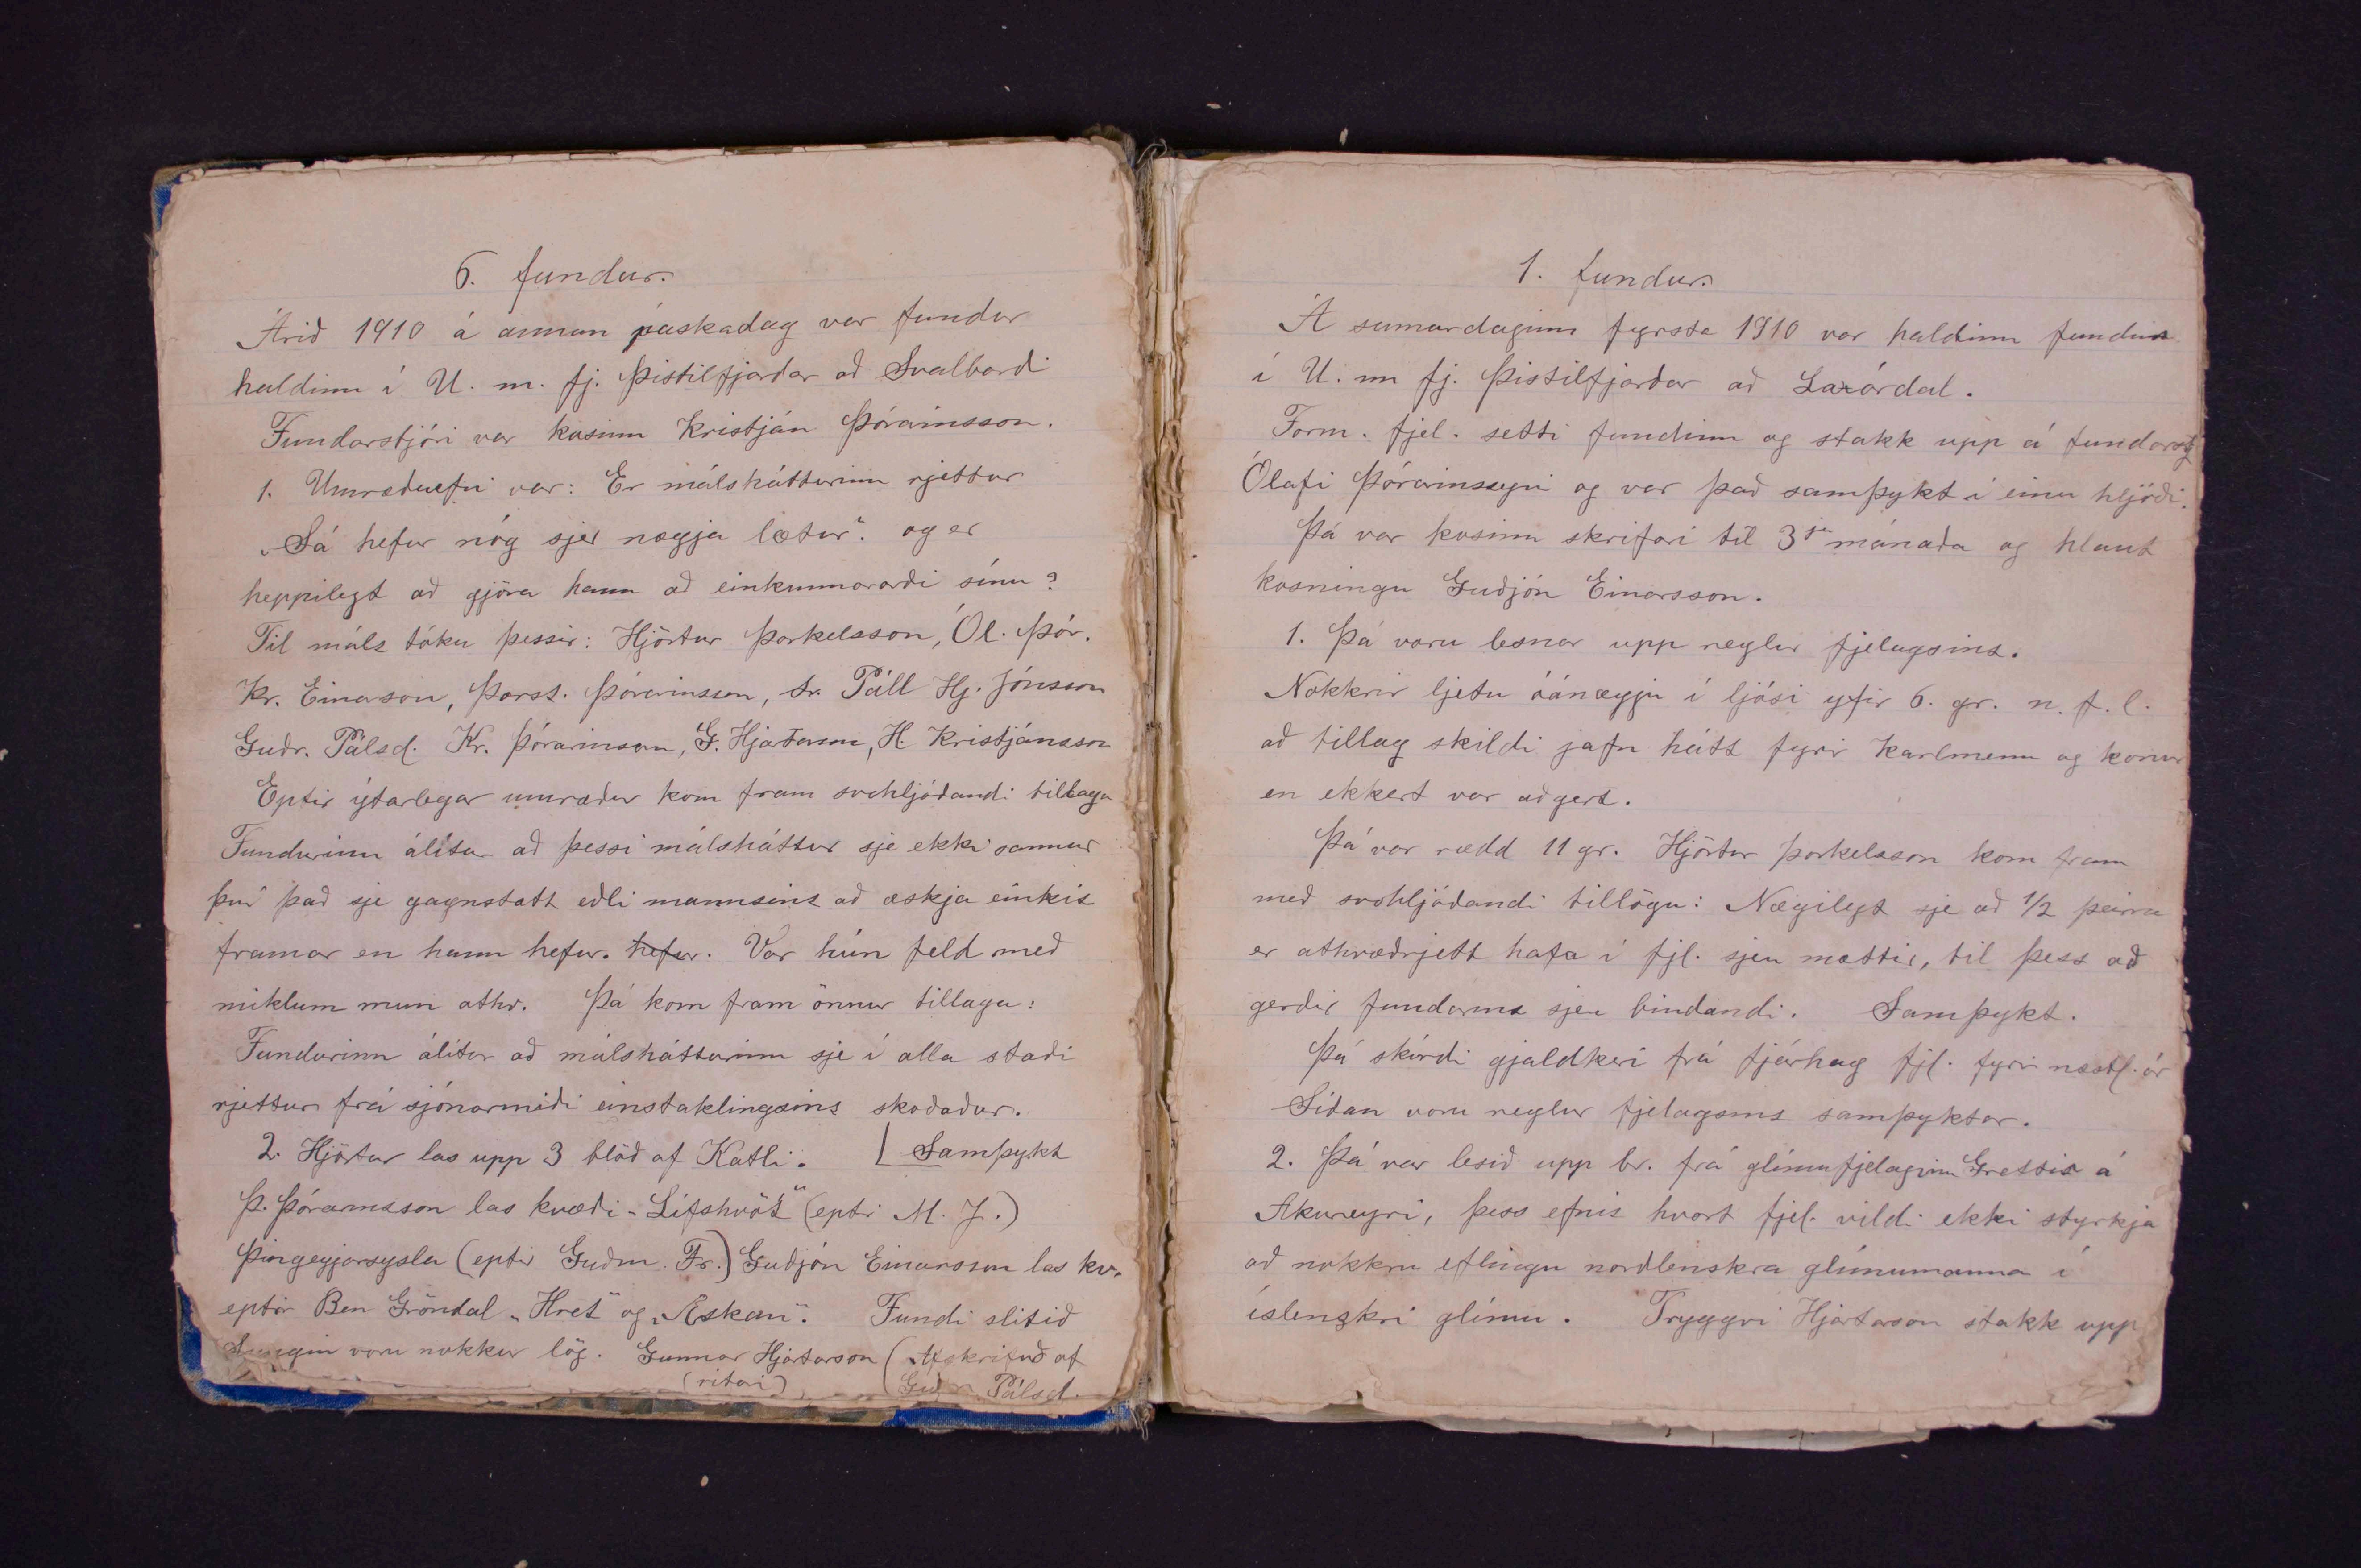 6. fundur.
Árið 1910 á annan páskadag var fundur
haldinn í U. m. fj. Þistilfjarðar að Svalbarði
Fundarstjóri var kosinn Kristján Þórarinsson.
1. Umræðuefni var: Er málshátturinn rjettur
„Sá hefur nóg sjer nægja lætur". og er
heppilegt að gjöra hann að einkunnarorði sínu?
Til máls tóku þessir: Hjörtur Þorkelsson, Ól. Þór.
Kr. Einarson, Þorst. Þórarinsson, sr. Páll Hj. Jónsson
Guðr. Pálsd. Kr. Þórarinsson, G. Hjartarson, H Kristjánsson
Eptir ýtarlegar umræður kom fram svohljóðandi tillaga
Fundurinn álítur að þessi málsháttur sje ekki sannur
því það sje gagnstætt eðli mannsins að æskja einkis
framar en hann hefur. hefur. Var hún feld með
miklum mun atkv. Þá kom fram önnur tillaga:
Fundurinn álítur að málshátturinn sje í alla staði
rjettur frá sjónarmiði einstaklingsins skoðaður.
2. Hjörtur las upp 3 blöð af Katli. | Samþykt
Þ. Þórarinsson las kvæði „Lífshvöt" (eptir M. J.)
Þingeyjarsýsla (eptir Guðm. Fr.) Guðjón Einarsson las kv.
eptir Ben Gröndal „Hret" og „Askan". Fundi slitið
Sungin voru nokkur lög. Gunnar Hjartarson (Afskrifuð af
(ritari) Guðr. Pálsd.
1. fundur.
Á sumardaginn fyrsta 1910 var haldinn fundur
í U. m fj. Þistilfjarðar að Laxárdal.
Form. fjel. setti fundinn og stakk upp á fundarstj
Ólafi Þórarinssyni og var það samþykt í einu hljóði.
Þá var kosinn skrifari til 3ja mánaða og hlaut
kosningu Guðjón Einarsson.
1. Þá voru lesnar upp reglur fjelagsins.
Nokkrir ljetu óánægju í ljósi yfir 6. gr. n. f. l.
að tillag skildi jafn hátt fyrir karlmenn og konur
en ekkert var aðgert.
Þá var rædd 11 gr. Hjörtur Þorkelsson kom fram
með svohljóðandi tillögu: Nægilegt sje að 1/2 þeirra
er atkvæðrjett hafa í fjl. sjeu mættir, til þess að
gerðir fundarins sjeu bindandi. Samþykt.
Þá skírði gjaldkeri frá fjárhag fjl. fyrir næstl. ár
Síðan voru reglur fjelagsins samþyktar.
2. Þá var lesið upp br. frá glímufjelaginu Grettir á
Akureyri, þess efnis hvort fjel. vildi ekki styrkja
að nokkru eflingu norðlenskra glímumanna í
íslenzkri glímu. Tryggvi Hjartarson stakk upp